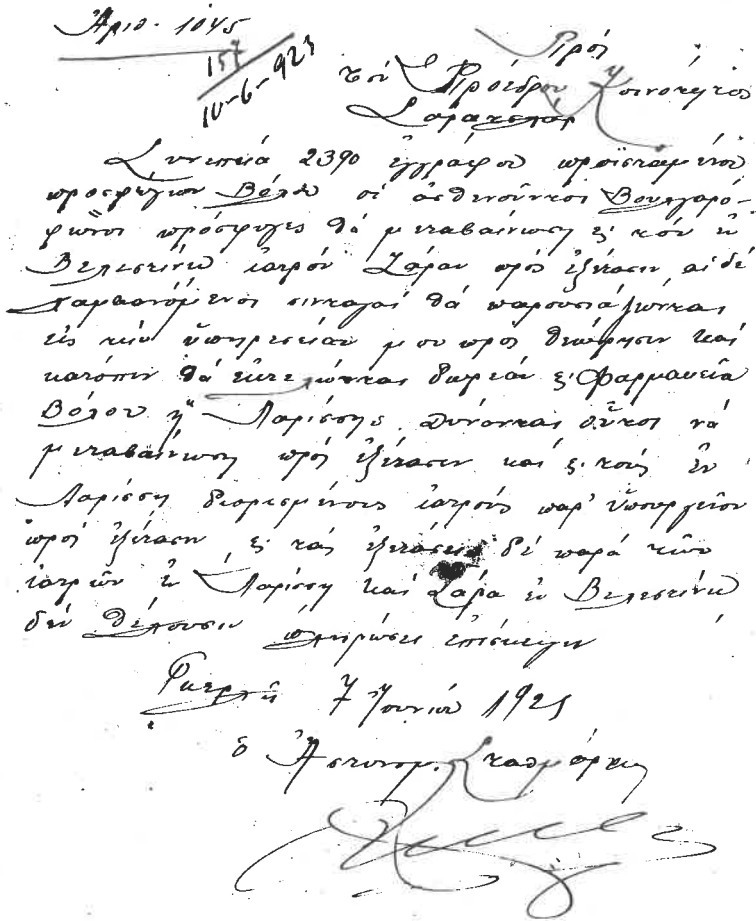 Αριθ. 1045
157
10-6-923
Πρός
τον Πρόεδρον Κοινότητος
Συνεπεία 2390 εγγράφου προϊσταμένου
προσφύγων Βόλου οι ασθενούντες Βουλγαρό-
φωνοι πρόσφυγες θα μεταβαίνωσι εις τον εν
Βελεστίνω ιατρόν Ζάραν προς εξέτασιν, αι δε
λαμβανόμεναι συνταγαί θα παρουσιάζωνται
εις την υπηρεσίαν μου προς θεώρησιν και
κατόπιν θα εκτελώνται δωρεάν εις Φαρμακεία
Βόλου ή Λαρίσσης δύνανται ούτοι να
μεταβαίνωσι προς εξέτασιν και εις τους εν
Λαρίσση διορισμένους ιατρούς παρ' υπουργείου
προς εξέτασιν, εις τας εξετάσεις δε παρά των
ιατρών εν Λαρίσση και Ζάρα εν Βελεστίνω
δεν θέλουσιν πληρώσει επίσκεψιν
7 Ιουνίου 1923
ο Αστυνομ. Σταθμάρχης